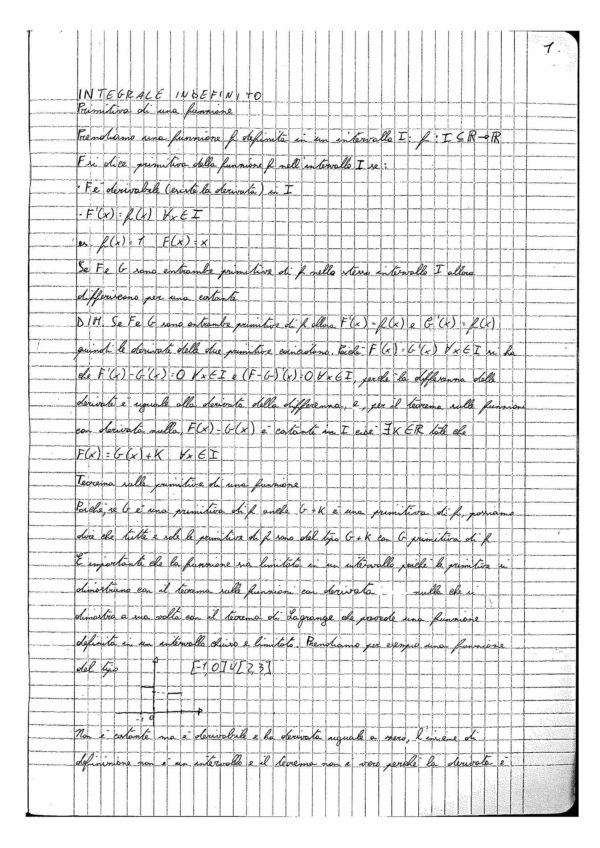 1.
INTEGRALE INDEFINITO
Primitiva di una funzione
Prendiamo una funzione f definita in un intervallo I: f: I ⊆ ℝ → ℝ
F si dice primitiva della funzione f nell'intervallo I se:
· F è derivabile (esiste la derivata) in I
· F'(x) = f(x) ∀x ∈ I
es. f(x) = 1 F(x) = x
Se F e G sono entrambe primitive di f nello stesso intervallo I allora
differiscono per una costante
DIM. Se F e G sono entrambe primitive di f allora F'(x) = f(x) e G'(x) = f(x)
quindi le derivate delle due primitive coincidono. Poiché F'(x) = G'(x) ∀x ∈ I si ha
che F'(x) - G'(x) = 0 ∀x ∈ I e (F-G)'(x) = 0 ∀x ∈ I, perché la differenza delle
derivate è uguale alla derivata della differenza, e, per il teorema sulle funzioni
con derivata nulla, F(x) - G(x) è costante in I cioè ∃K ∈ ℝ tale che
F(x) = G(x) + K ∀x ∈ I
Teorema sulle primitive di una funzione
Poiché, se G è una primitiva di f anche G + K è una primitiva di f, possiamo
dire che tutte e sole le primitive di f sono del tipo G + K con G primitiva di f
È importante che la funzione sia limitata in un intervallo perché le primitive si
dimostrano con il teorema sulle funzioni con derivata nulla che si
dimostra a sua volta con il teorema di Lagrange che prevede una funzione
definita in un intervallo chiuso e limitato. Prendiamo per esempio una funzione
del tipo [-1,0] ∪ [2,3]
-1 0
Non è costante ma è derivabile e ha derivata uguale a zero, l'insieme di
definizione non è un intervallo e il teorema non è vero perché la derivata è